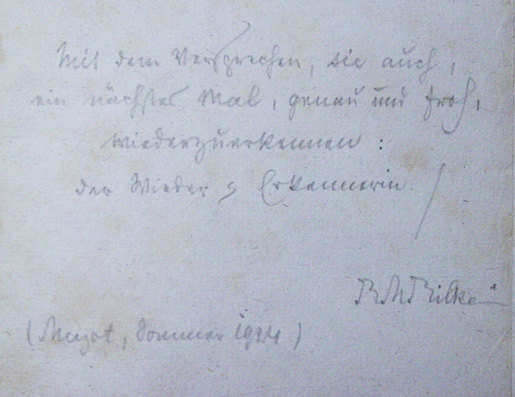 Mit dem Versprechen, sie auch,
ein nächstes Mal, genau und froh,
wiederzuerkennen:
der Wieder-Erkennerin
RMRilke
(Muzot, Sommer 1924)